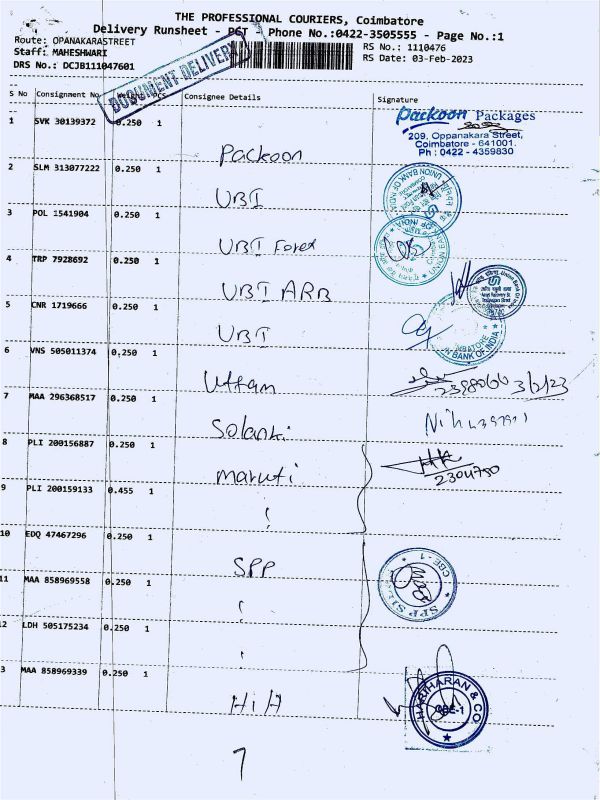 THE PROFESSIONAL COURIERS, Coimbatore
Delivery Runsheet - PCT - Phone No.:0422-3505555 - Page No.:1
Route: OPANAKARASTREET RS No.: 1110476
Staff: MAHESHWARI RS Date: 03-Feb-2023
DRS No.: DCJB111047601
DOCUMENT DELIVERY
S No Consignment No Weight PCS Consignee Details Signature
1 SVK 30139372 0.250 1 Packoon
Packoon Packages
209, Oppanakara Street,
Coimbatore - 641001.
Ph : 0422 - 4359830
2 SLM 313077222 0.250 1 UBI
UNION BANK OF INDIA
3 POL 1541904 0.250 1 UBI Forex
4 TRP 7928692 0.250 1 UBI ARB
5 CNR 1719666 0.250 1 UBI
BANK OF INDIA
6 VNS 505011374 0.250 1 Uttam
3/2/23
7 MAA 296368517 0.250 1 Solanki
8 PLI 200156887 0.250 1 maruti
2304750
9 PLI 200159133 0.455 1
10 EDQ 47467296 0.250 1 SPP
CBE - 1
11 MAA 858969558 0.250 1
2 LDH 505175234 0.250 1
3 MAA 858969339 0.250 1 HIH
HARIHARAN & CO
CBE-1
7